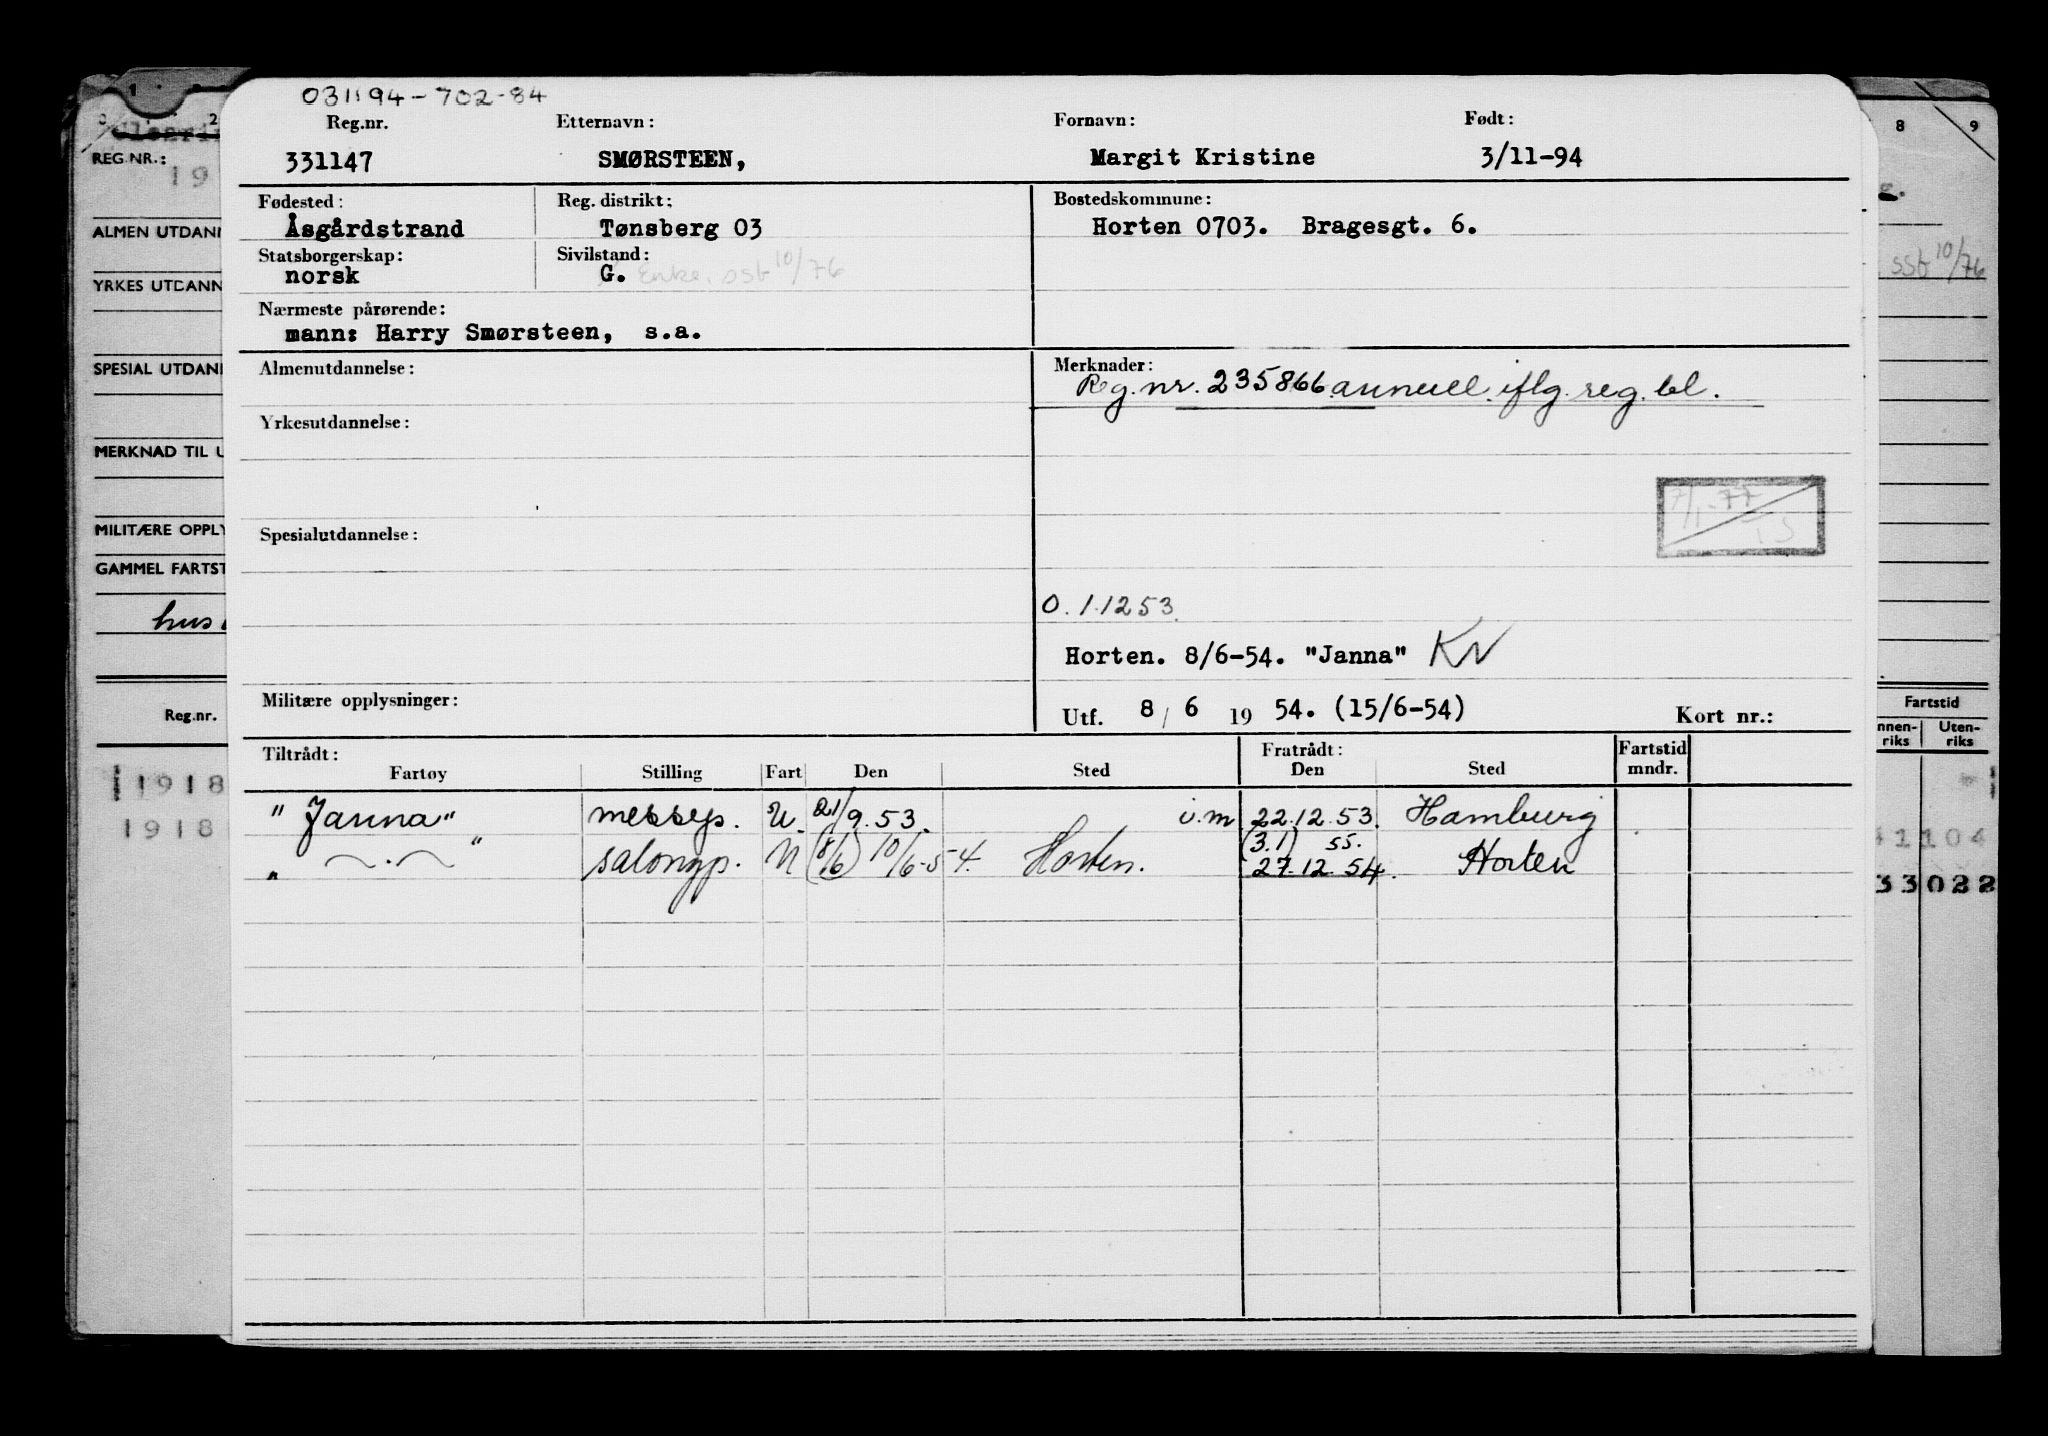 031194-702-84
Reg.nr. Etternavn: Fornavn: Født:
331147 SMØRSTEEN, Margit Kristine 3/11-94
Fødested: Reg. distrikt: Bostedskommune:
Åsgårdstrand Tønsberg 03 Horten 0703. Bragesgt. 6.
Statsborgerskap: Sivilstand:
norsk G. Enke. sst 10/76
Nærmeste pårørende:
mann: Harry Smørsteen, s.a.
Almenutdannelse: Merknader:
Reg. nr. 235866 annull. iflg. reg. bl.
Yrkesutdannelse:
7/1-77
TS
Spesialutdannelse:
O. 1.12 53.
Horten. 8/6-54. "Janna" KN
Militære opplysninger: Utf. 8/6 19 54. (15/6-54) Kort nr.:
Tiltrådt: Fratrådt: Fartstid
Fartøy Stilling Fart Den Sted Den Sted mndr.
"Janna" messep. U. 21/9.53. i.m 22.12.53. Hamburg
(3.1) 55.
" — . — " salongp. N (8/6) 10/6-54. Horten. 27.12.54. Horten
REG.NR.:
19
ALMEN UTDANN
YRKES UTDANN
SPESIAL UTDAN
MERKNAD TIL U
MILITÆRE OPPLY
GAMMEL FARTST
hus
Reg.nr.
1918
1918
8 9
sst 10/76
Fartstid
nnen-riks Uten-riks
41104
33022